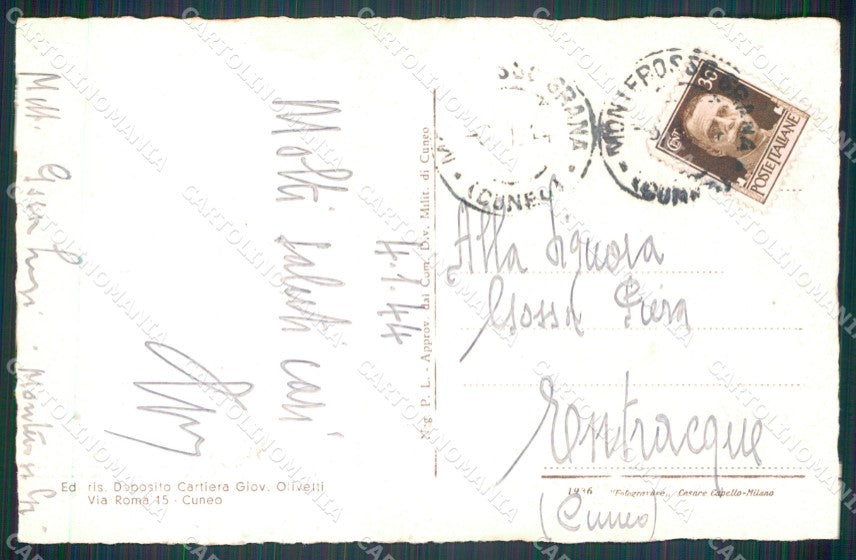 Molti saluti cari
4.1.44
Alla Signora
Piera
Entracque
(Cuneo)
MONTEROSSO GRANA
(CUNEO)
SSO GRANA
(CUNEO)
30
CENT
POSTE ITALIANE
N-g P. L. - Approv. dal Com. Div. Milit. di Cuneo
Ed. ris. Deposito Cartiera Giov. Olivetti
Via Roma 15 - Cuneo
1936 "Fotogravure" Cesare Capello-Milano
CARTOLINOMANIA